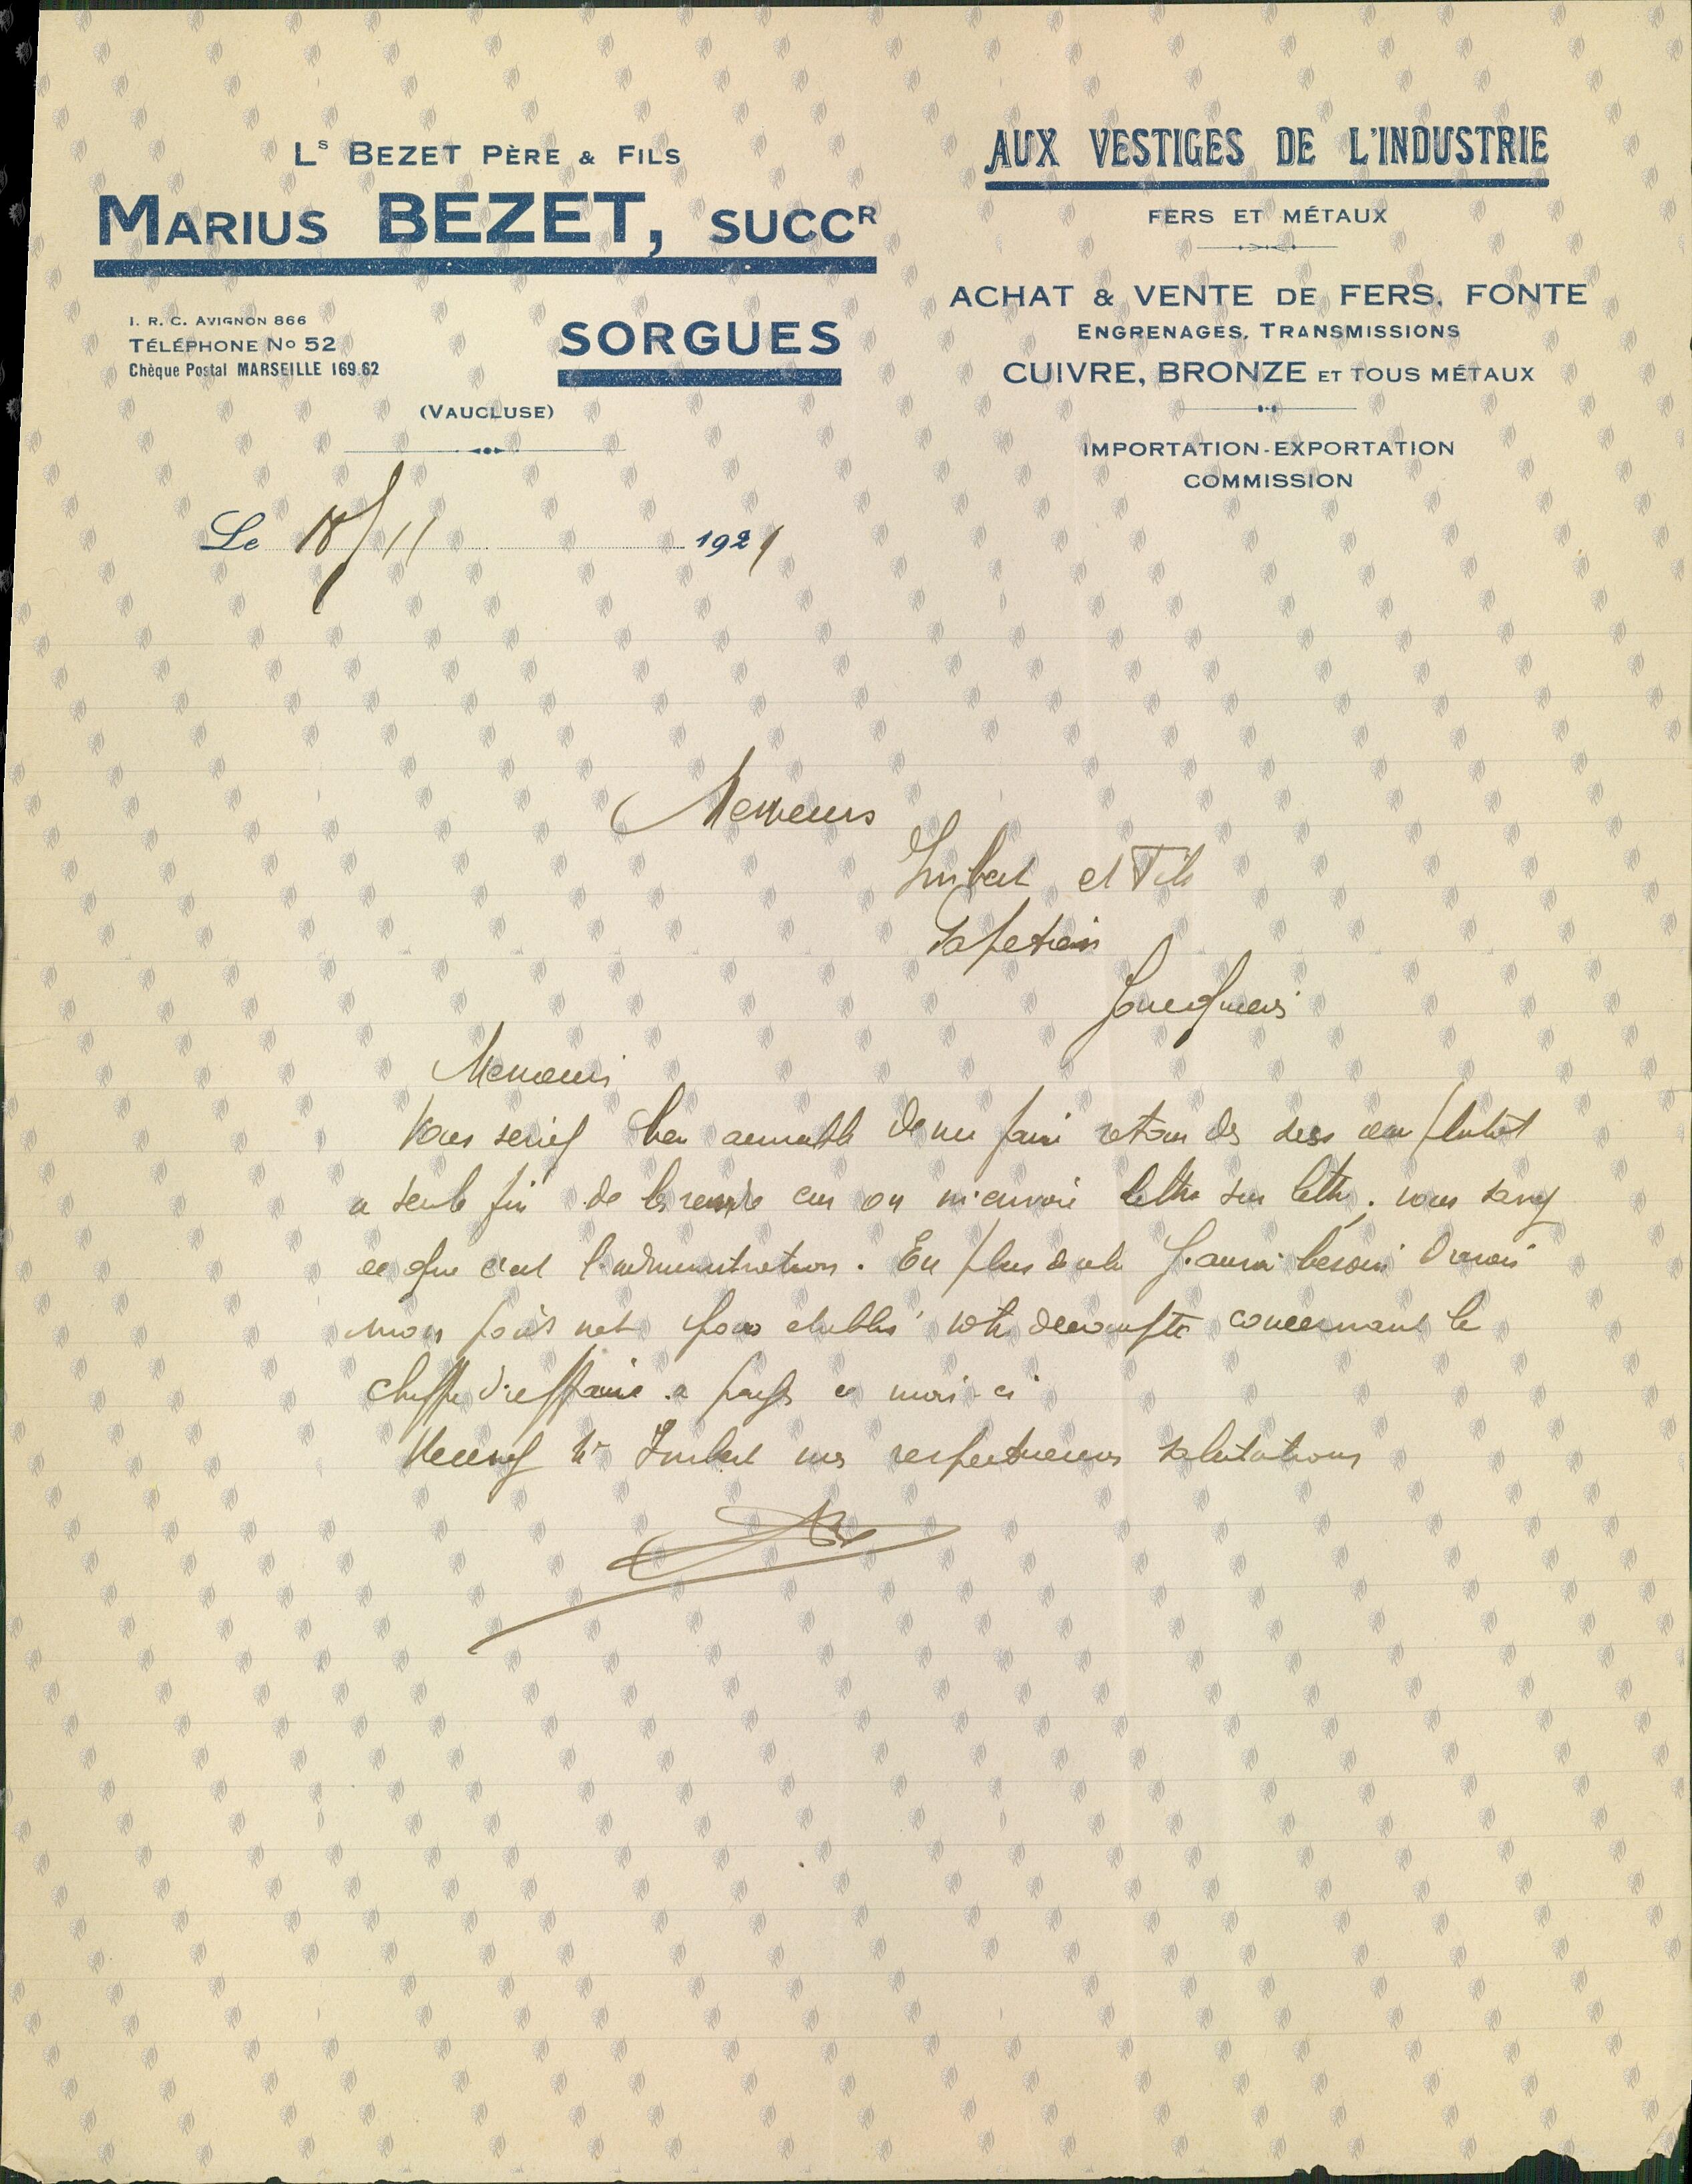 Ls BEZET PÈRE & FILS
MARIUS BEZET, SUCCR
I. R. C. AVIGNON 866
TÉLÉPHONE No 52
Chèque Postal MARSEILLE 169.62
SORGUES
(VAUCLUSE)
AUX VESTIGES DE L'INDUSTRIE
FERS ET MÉTAUX
ACHAT & VENTE DE FERS, FONTE
ENGRENAGES, TRANSMISSIONS
CUIVRE, BRONZE ET TOUS MÉTAUX
IMPORTATION-EXPORTATION
COMMISSION
Le 18/11 1921
Messieurs
Imbert et Fils
Papeterie
Jonquières
Messieurs
Vous seriez bien aimable de me faire retour des sacs au plutot
a seule fin de les rendre car on m'envoie lettre sur lettre. vous savez
ce que c'est l'administration. En plus de cela J'aurai besoin d'avoir
mon poids net pour etablir votre decompte concernant le
chiffre d'affaire a payer ce mois-ci
Recevez Mr Imbert mes respectueuses salutations